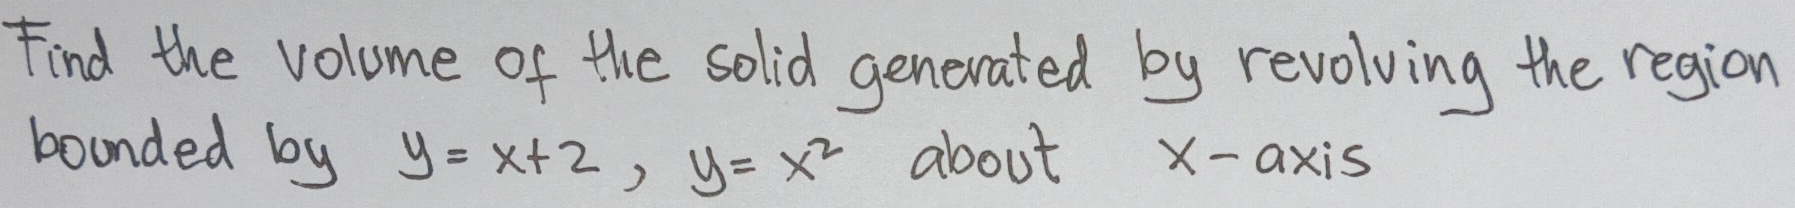 Find the volume of the solid generated by revolving the region
bounded by y = x+2 , y = x² about x-axis